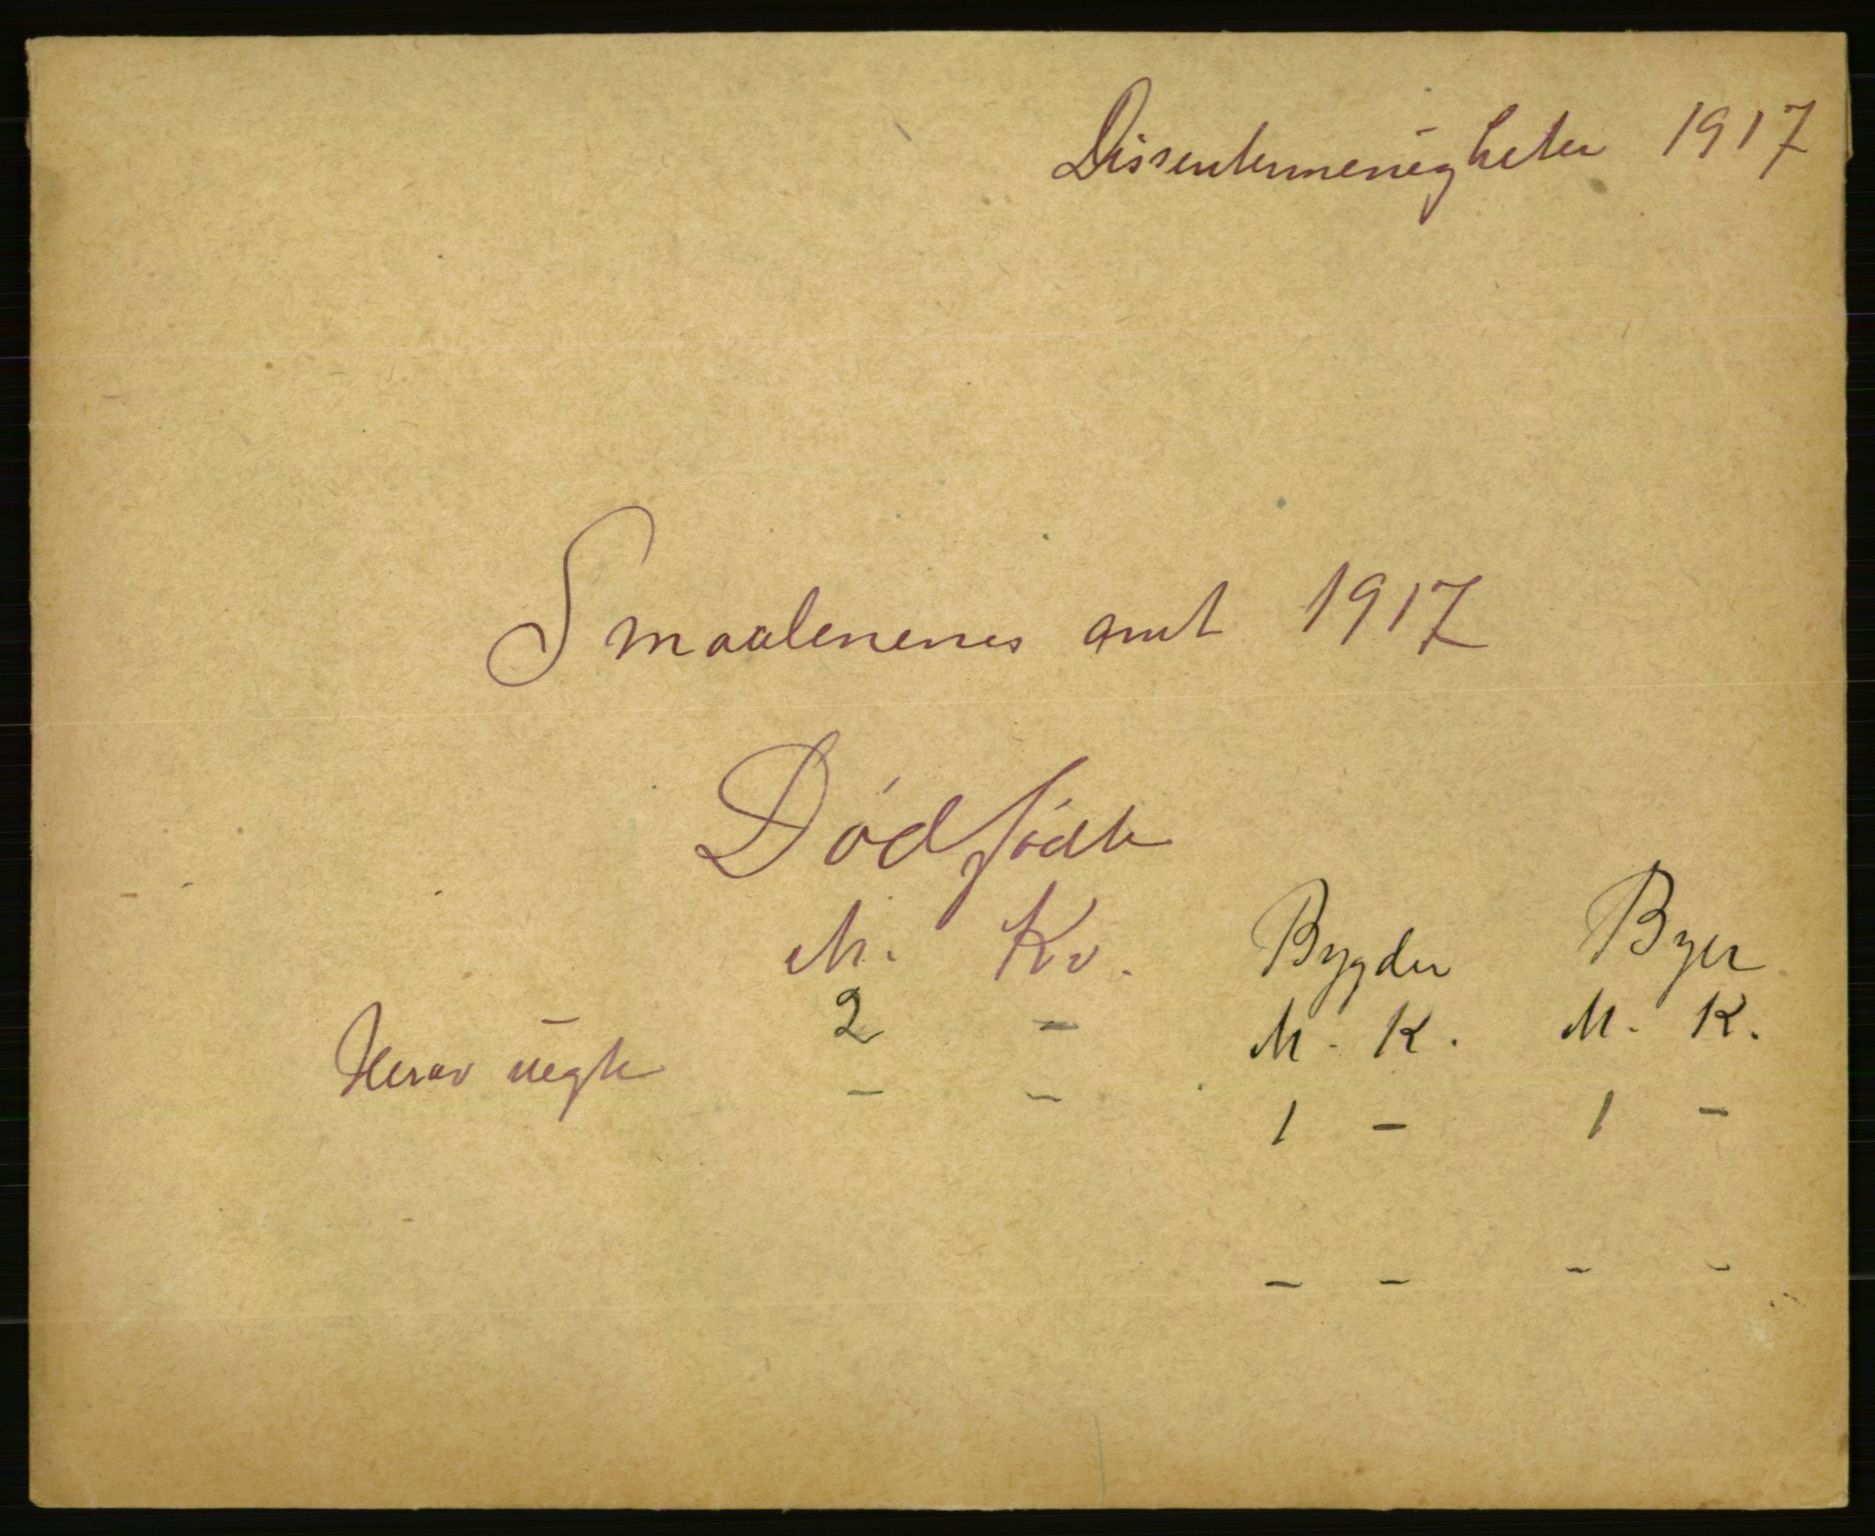 Dissentermenigheter 1917
Smaalenenes amt 1917
Dødfødte
M. Kv. Bygder Byer
2 – M. K. M. K.
Herav uegte – –
1 – 1 –
– – – –